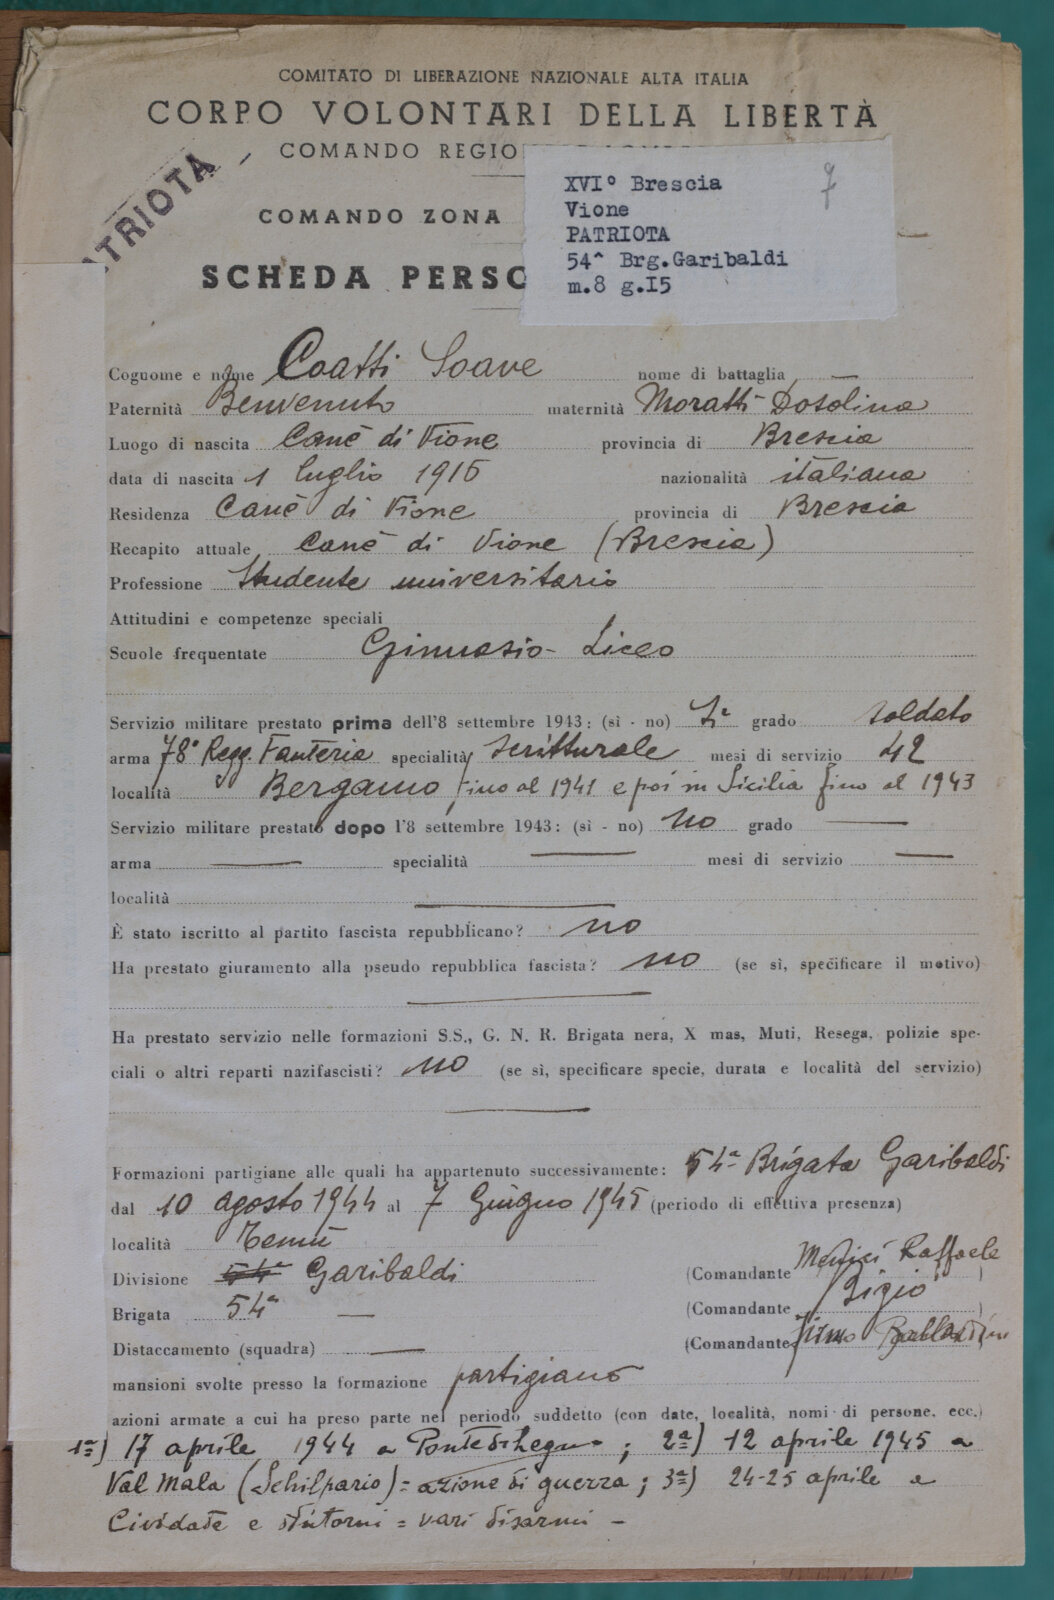 COMITATO DI LIBERAZIONE NAZIONALE ALTA ITALIA
CORPO VOLONTARI DELLA LIBERTÀ
COMANDO REGIO
TRIOTA
COMANDO ZONA
SCHEDA PERSO
XVI° Brescia 7
Vione
PATRIOTA
54^ Brg.Garibaldi
m.8 g.I5
Cognome e nome Coatti Soave nome di battaglia —
Paternità Benvenuto maternità Moratti Dosolina
Luogo di nascita Canè di Vione provincia di Brescia
data di nascita 1 luglio 1916 nazionalità italiana
Residenza Canè di Vione provincia di Brescia
Recapito attuale Canè di Vione (Brescia)
Professione Studente universitario
Attitudini e competenze speciali
Scuole frequentate Ginnasio - Liceo
Servizio militare prestato prima dell'8 settembre 1943: (sì - no) Si grado soldato
arma 78° Regg. Fanteria specialità scritturale mesi di servizio 42
località Bergamo fino al 1941 e poi in Sicilia fino al 1943
Servizio militare prestato dopo l'8 settembre 1943: (sì - no) no grado —
arma — specialità — mesi di servizio —
località —
È stato iscritto al partito fascista repubblicano? no
Ha prestato giuramento alla pseudo repubblica fascista? no (se sì, specificare il motivo)
Ha prestato servizio nelle formazioni S.S., G. N. R. Brigata nera, X mas, Muti, Resega, polizie spe-
ciali o altri reparti nazifascisti? no (se sì, specificare specie, durata e località del servizio)
Formazioni partigiane alle quali ha appartenuto successivamente: 54ª Brigata Garibaldi
dal 10 agosto 1944 al 7 Giugno 1945 (periodo di effettiva presenza)
località Temù
Divisione 54ª Garibaldi (Comandante Medici Raffaele )
Brigata 54ª — (Comandante Bigio )
Distaccamento (squadra) — (Comandante
mansioni svolte presso la formazione partigiano
azioni armate a cui ha preso parte nel periodo suddetto (con date, località, nomi di persone, ecc.)
1ª) 17 aprile 1944 a Pontedilegno ; 2ª) 12 aprile 1945 a
Val Mala (Schilpario) = azione di guerra ; 3ª) 24-25 aprile a
Cividate e dintorni = vari disarmi -